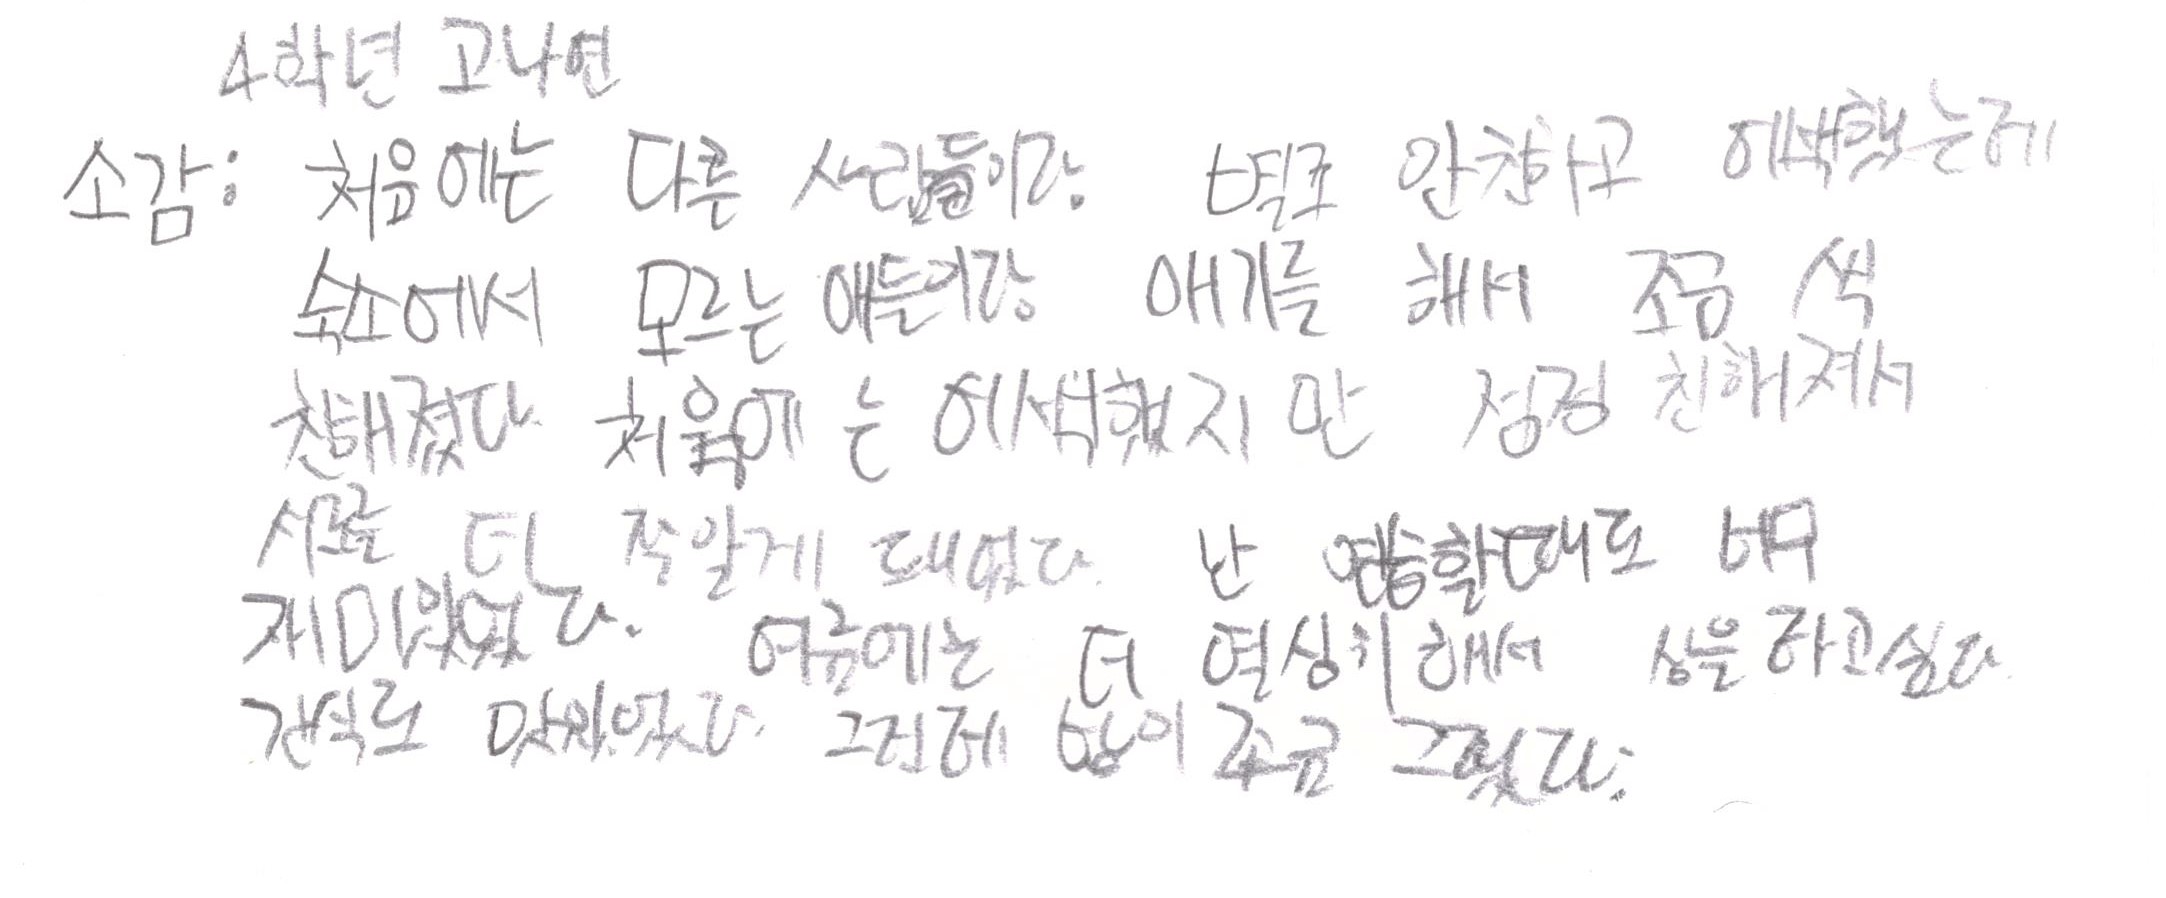 4학년 고나연
소감: 처음에는 다른 사람들이랑 별로 안친하고 어색했는데
숙소에서 모르는 애들이랑 얘기를 해서 조금 씩
친해졌다. 처음에는 어색했지만 점점 친해져서
서로를 더 잘알게 돼었다. 난 연습할때도 너무
재미있었다. 여름에는 더 열심히 해서 상을 타고싶다.
간식도 맛있었다. 그런데 밥이 조금 그랬다.